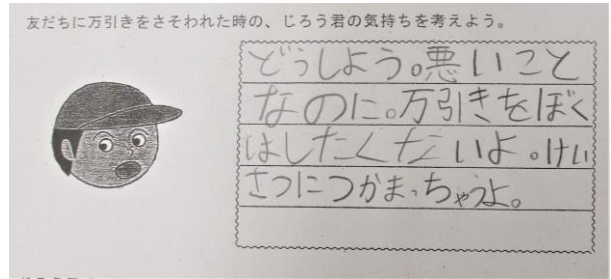 友だちに万引きをさそわれた時の、じろう君の気持ちを考えよう。
どうしよう。悪いこと
なのに。万引きをぼく
はしたくないよ。けい
さつにつかまっちゃうよ。